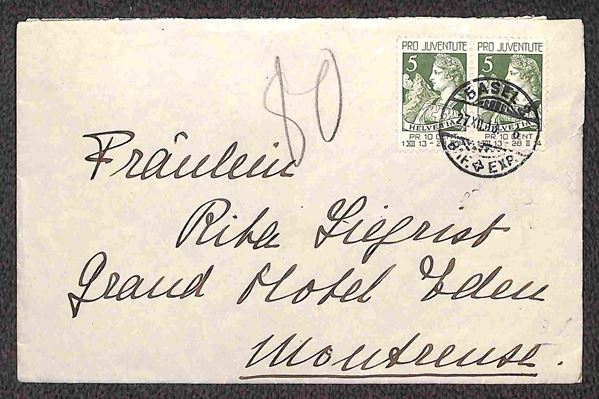 PRO JUVENTUTE PRO JUVENTUTE
5 5
HELVETIA HELVETIA
PR 10 CENT. PR 10 CENT.
1 XII 13 - 28 II 14
BASEL 2
27.XII.13
BRF. EXP.
80
Fräulein
Rita Siegrist
Grand Hotel Eden
Montreux.